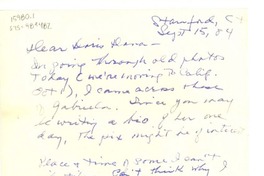 Stamford, Ct
Sept 15, 84
Dear Doris Dana -
In going through old photos
today (we're moving to Calif.
Oct 1), I came across these
of Gabriela. Since you may
be writing a bio of her one
day, the pix might be of interest
Place & time of some I can't
Can't think why I